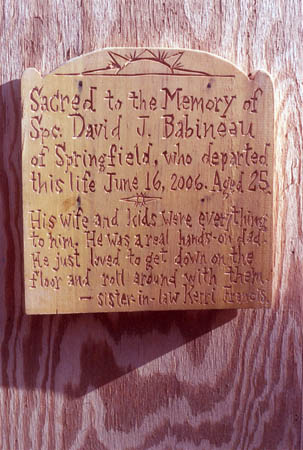 Sacred to the Memory of
Spc. David J. Babineau
of Springfield, who departed
this life June 16, 2006. Aged 25
His wife and kids were everything
to him. He was a real hands-on dad.
He just loved to get down on the
floor and roll around with them.
— sister-in-law Kerri Francis.